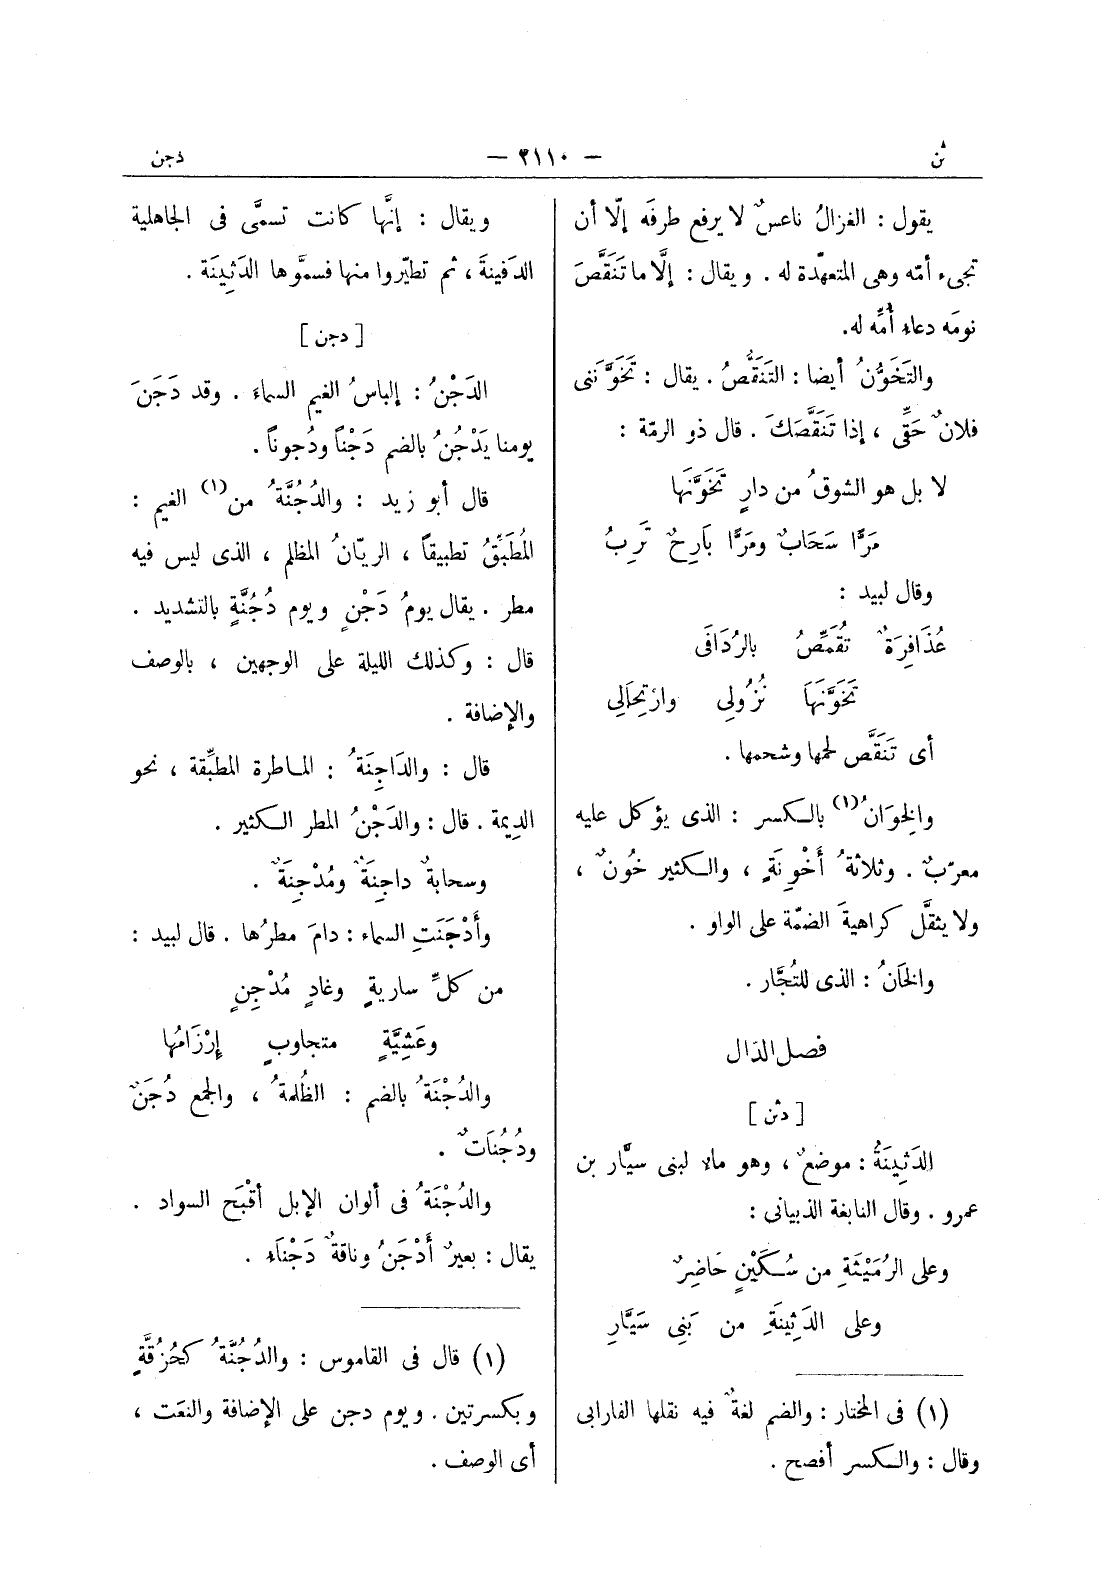 ثن
— ٢١١٠ —
دجن
يقول : الغزالُ ناعسٌ لا يرفع طرفَه إلّا أن
تجىء أمّه وهى المتعهّدة له . ويقال : إلَّا ما تَنَقَّصَ
نومَه دعاء أُمِّه له.
والتَخَوُّنُ أيضا : التَنَقُّصُ . يقال : تَخَوَّنَنى
فلانٌ حَقِّى ، إذا تَنَقَّصَكَ . قال ذو الرمّة :
لا بل هو الشوقُ من دارٍ تَخَوَّنَها
مَرًّا سَحَابٌ ومَرًّا بَارِحٌ تَرِبُ
وقال لبيد :
عُذَافِرَةٌ تُقَمِّصُ بالرُدَافَى
تَخَوَّنَهَا نُزُولِى وارْتِحَالِى
أى تَنَقَّص لحمَها وشحمها .
والخِوَانُ (١) بالكسر : الذى يؤكل عليه
معرّبٌ . وثلاثةُ أَخْوِنَةٍ ، والكثير خُونٌ ،
ولا يثقَّل كراهيةَ الضمّة على الواو .
والخَانُ : الذى للتُجَّار .
فصل الدال
[ دثن ]
الدَثِينَةُ : موضعٌ ، وهو ماء لبنى سيَّار بن
عمرو . وقال النابغة الذبيانى :
وعلى الرُمَيْثَةِ من سُكَيْنٍ حَاضِرٌ
وعلى الدَثِينَةِ من بَنِى سَيَّارِ
(١) فى المختار : والضم لغةٌ فيه نقلها الفارابى
وقال : والكسر أفصح .
ويقال : إنَّها كانت تسمَّى فى الجاهلية
الدَفينةَ ، ثم تطيّروا منها فسمَّوها الدَثِينَة .
[ دجن ]
الدَجْنُ : إلباسُ الغيم السماءَ . وقد دَجَنَ
يومنا يَدْجُنُ بالضم دَجْناً ودُجوناً .
قال أبو زيد : والدُجُنَّةُ من (١) الغيم :
المُطَبِّقُ تطبيقاً ، الريّانُ المظلم ، الذى ليس فيه
مطر . يقال يومُ دَجْنٍ ويوم دُجُنَّةٍ بالتشديد .
قال : وكذلك الليلة على الوجهين ، بالوصف
والإضافة .
قال : والدَاجِنَةُ : الماطرة المطبِّقة ، نحو
الدِيمة . قال : والدَجْنُ المطر الكثير .
وسحابةٌ داجِنَةٌ ومُدْجِنَةٌ .
وأَدْجَنَتِ السماء : دامَ مطرُها . قال لبيد :
من كلِّ ساريةٍ وغادٍ مُدْجِنٍ
وعَشِيَّةٍ متجاوبٍ إرْزَامُها
والدُجْنَةُ بالضم : الظُلمةُ ، والجمع دُجَنٌ
ودُجُنَاتٌ .
والدُجْنَةُ فى ألوان الإبل أقْبَح السواد .
يقال : بعيرٌ أَدْجَنُ وناقةٌ دَجْنَاء .
(١) قال فى القاموس : والدُجُنَّةُ كَحُزُقَّةٍ
وبكسرتين . ويوم دجن على الإضافة والنعَت ،
أى الوصف .